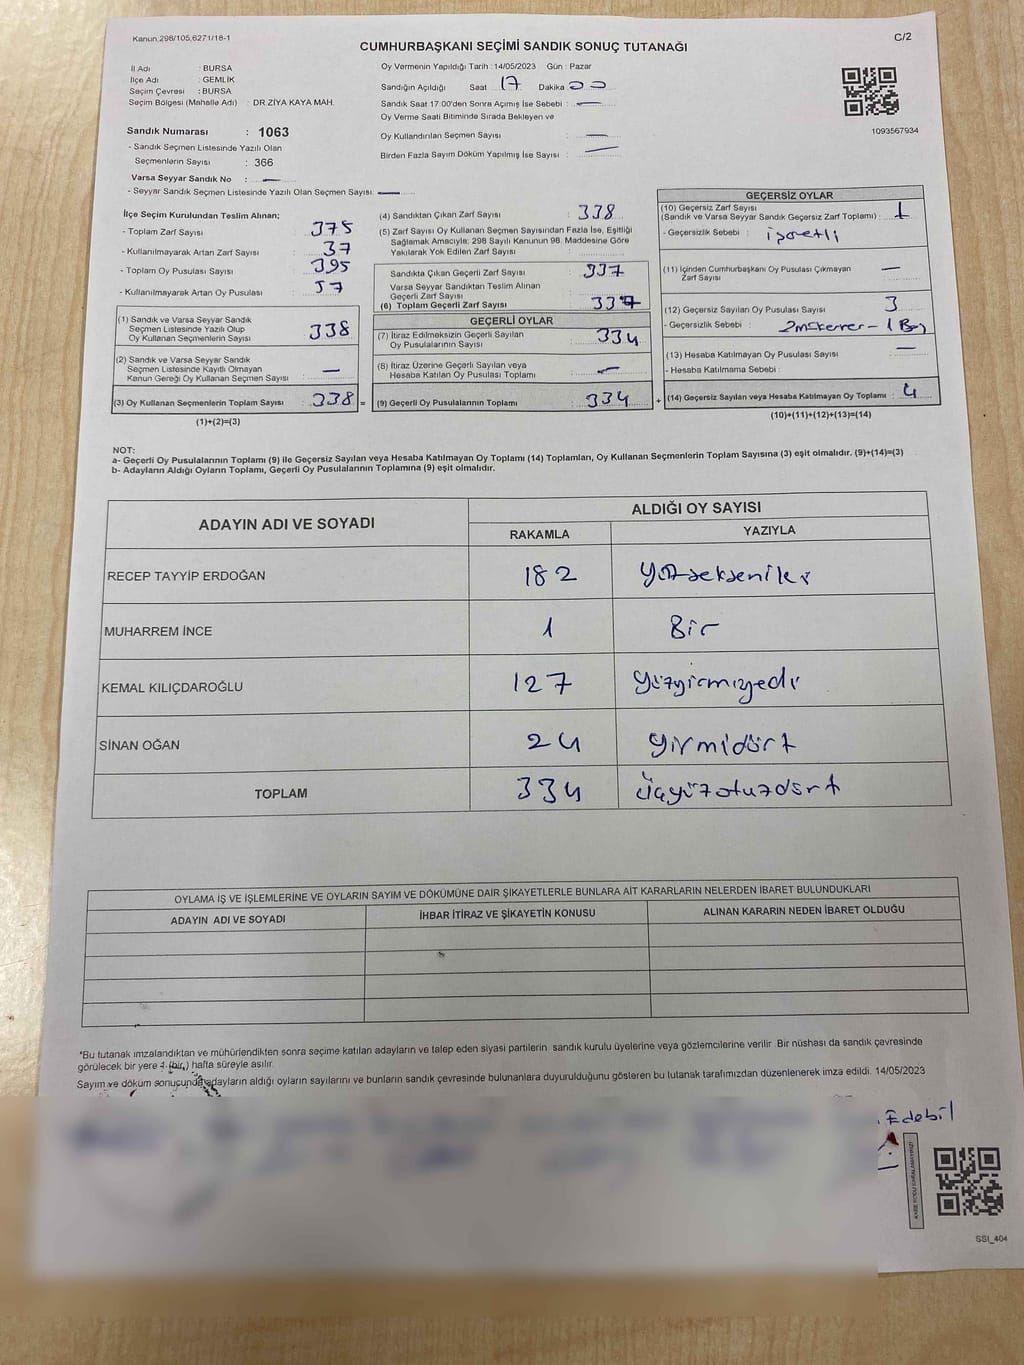 Kanun.298/105,6271/18-1
CUMHURBAŞKANI SEÇİMİ SANDIK SONUÇ TUTANAĞI
C/2
İl Adı : BURSA
İlçe Adı : GEMLİK
Seçim Çevresi : BURSA
Seçim Bölgesi (Mahalle Adı) : DR.ZİYA KAYA MAH.
Sandık Numarası : 1063
- Sandık Seçmen Listesinde Yazılı Olan
Seçmenlerin Sayısı : 366
Varsa Seyyar Sandık No : —
- Seyyar Sandık Seçmen Listesinde Yazılı Olan Seçmen Sayısı: —
Oy Vermenin Yapıldığı Tarih :14/05/2023 Gün : Pazar
Sandığın Açıldığı Saat 17 Dakika 00
Sandık Saat 17.00'den Sonra Açımış İse Sebebi : —
Oy Verme Saati Bitiminde Sırada Bekleyen ve
Oy Kullandırılan Seçmen Sayısı —
Birden Fazla Sayım Döküm Yapılmış İse Sayısı : —
1093567934
İlçe Seçim Kurulundan Teslim Alınan;
- Toplam Zarf Sayısı : 375
- Kullanılmayarak Artan Zarf Sayısı : 37
- Toplam Oy Pusulası Sayısı : 395
- Kullanılmayarak Artan Oy Pusulası : 57
(1) Sandık ve Varsa Seyyar Sandık
Seçmen Listesinde Yazılı Olup
Oy Kullanan Seçmenlerin Sayısı : 338
(2) Sandık ve Varsa Seyyar Sandık
Seçmen Listesinde Kayıtlı Olmayan
Kanun Gereği Oy Kullanan Seçmen Sayısı : —
(3) Oy Kullanan Seçmenlerin Toplam Sayısı : 338 =
(1)+(2)=(3)
(4) Sandıktan Çıkan Zarf Sayısı : 338
(5) Zarf Sayısı Oy Kullanan Seçmen Sayısından Fazla İse, Eşitliği
Sağlamak Amacıyla; 298 Sayılı Kanunun 98. Maddesine Göre
Yakılarak Yok Edilen Zarf Sayısı :
Sandıkta Çıkan Geçerli Zarf Sayısı : 337
Varsa Seyyar Sandıktan Teslim Alınan
Geçerli Zarf Sayısı
(6) Toplam Geçerli Zarf Sayısı : 337
GEÇERLİ OYLAR
(7) İtiraz Edilmeksizin Geçerli Sayılan
Oy Pusulalarının Sayısı : 334
(8) İtiraz Üzerine Geçerli Sayılan veya
Hesaba Katılan Oy Pusulası Toplamı : —
(9) Geçerli Oy Pusulalarının Toplamı : 334 +
GEÇERSİZ OYLAR
(10) Geçersiz Zarf Sayısı
(Sandık ve Varsa Seyyar Sandık Geçersiz Zarf Toplamı) : 1
- Geçersizlik Sebebi : işaretli
(11) İçinden Cumhurbaşkanı Oy Pusulası Çıkmayan
Zarf Sayısı —
(12) Geçersiz Sayılan Oy Pusulası Sayısı : 3
- Geçersizlik Sebebi : 2 mükerrer - 1 Boş
(13) Hesaba Katılmayan Oy Pusulası Sayısı : —
- Hesaba Katılmama Sebebi :
(14) Geçersiz Sayılan veya Hesaba Katılmayan Oy Toplamı : 4
(10)+(11)+(12)+(13)=(14)
NOT:
a- Geçerli Oy Pusulalarının Toplamı (9) ile Geçersiz Sayılan veya Hesaba Katılmayan Oy Toplamı (14) Toplamları, Oy Kullanan Seçmenlerin Toplam Sayısına (3) eşit olmalıdır. (9)+(14)=(3)
b- Adayların Aldığı Oyların Toplamı, Geçerli Oy Pusulalarının Toplamına (9) eşit olmalıdır.
ADAYIN ADI VE SOYADI
ALDIĞI OY SAYISI
RAKAMLA YAZIYLA
RECEP TAYYİP ERDOĞAN 182 yüzsekseniki
MUHARREM İNCE 1 Bir
KEMAL KILIÇDAROĞLU 127 yüzyirmiyedi
SİNAN OĞAN 24 yirmidört
TOPLAM 334 üçyüzotuzdört
OYLAMA İŞ VE İŞLEMLERİNE VE OYLARIN SAYIM VE DÖKÜMÜNE DAİR ŞİKAYETLERLE BUNLARA AİT KARARLARIN NELERDEN İBARET BULUNDUKLARI
ADAYIN ADI VE SOYADI İHBAR İTİRAZ VE ŞİKAYETİN KONUSU ALINAN KARARIN NEDEN İBARET OLDUĞU
*Bu tutanak imzalandıktan ve mühürlendikten sonra seçime katılan adayların ve talep eden siyasi partilerin sandık kurulu üyelerine veya gözlemcilerine verilir. Bir nüshası da sandık çevresinde
görülecek bir yere 1 (bir) hafta süreyle asılır.
Sayım ve döküm sonucunda adayların aldığı oyların sayılarını ve bunların sandık çevresinde bulunanlara duyurulduğunu gösteren bu tutanak tarafımızdan düzenlenerek imza edildi. 14/05/2023
Edebil
SSI_404